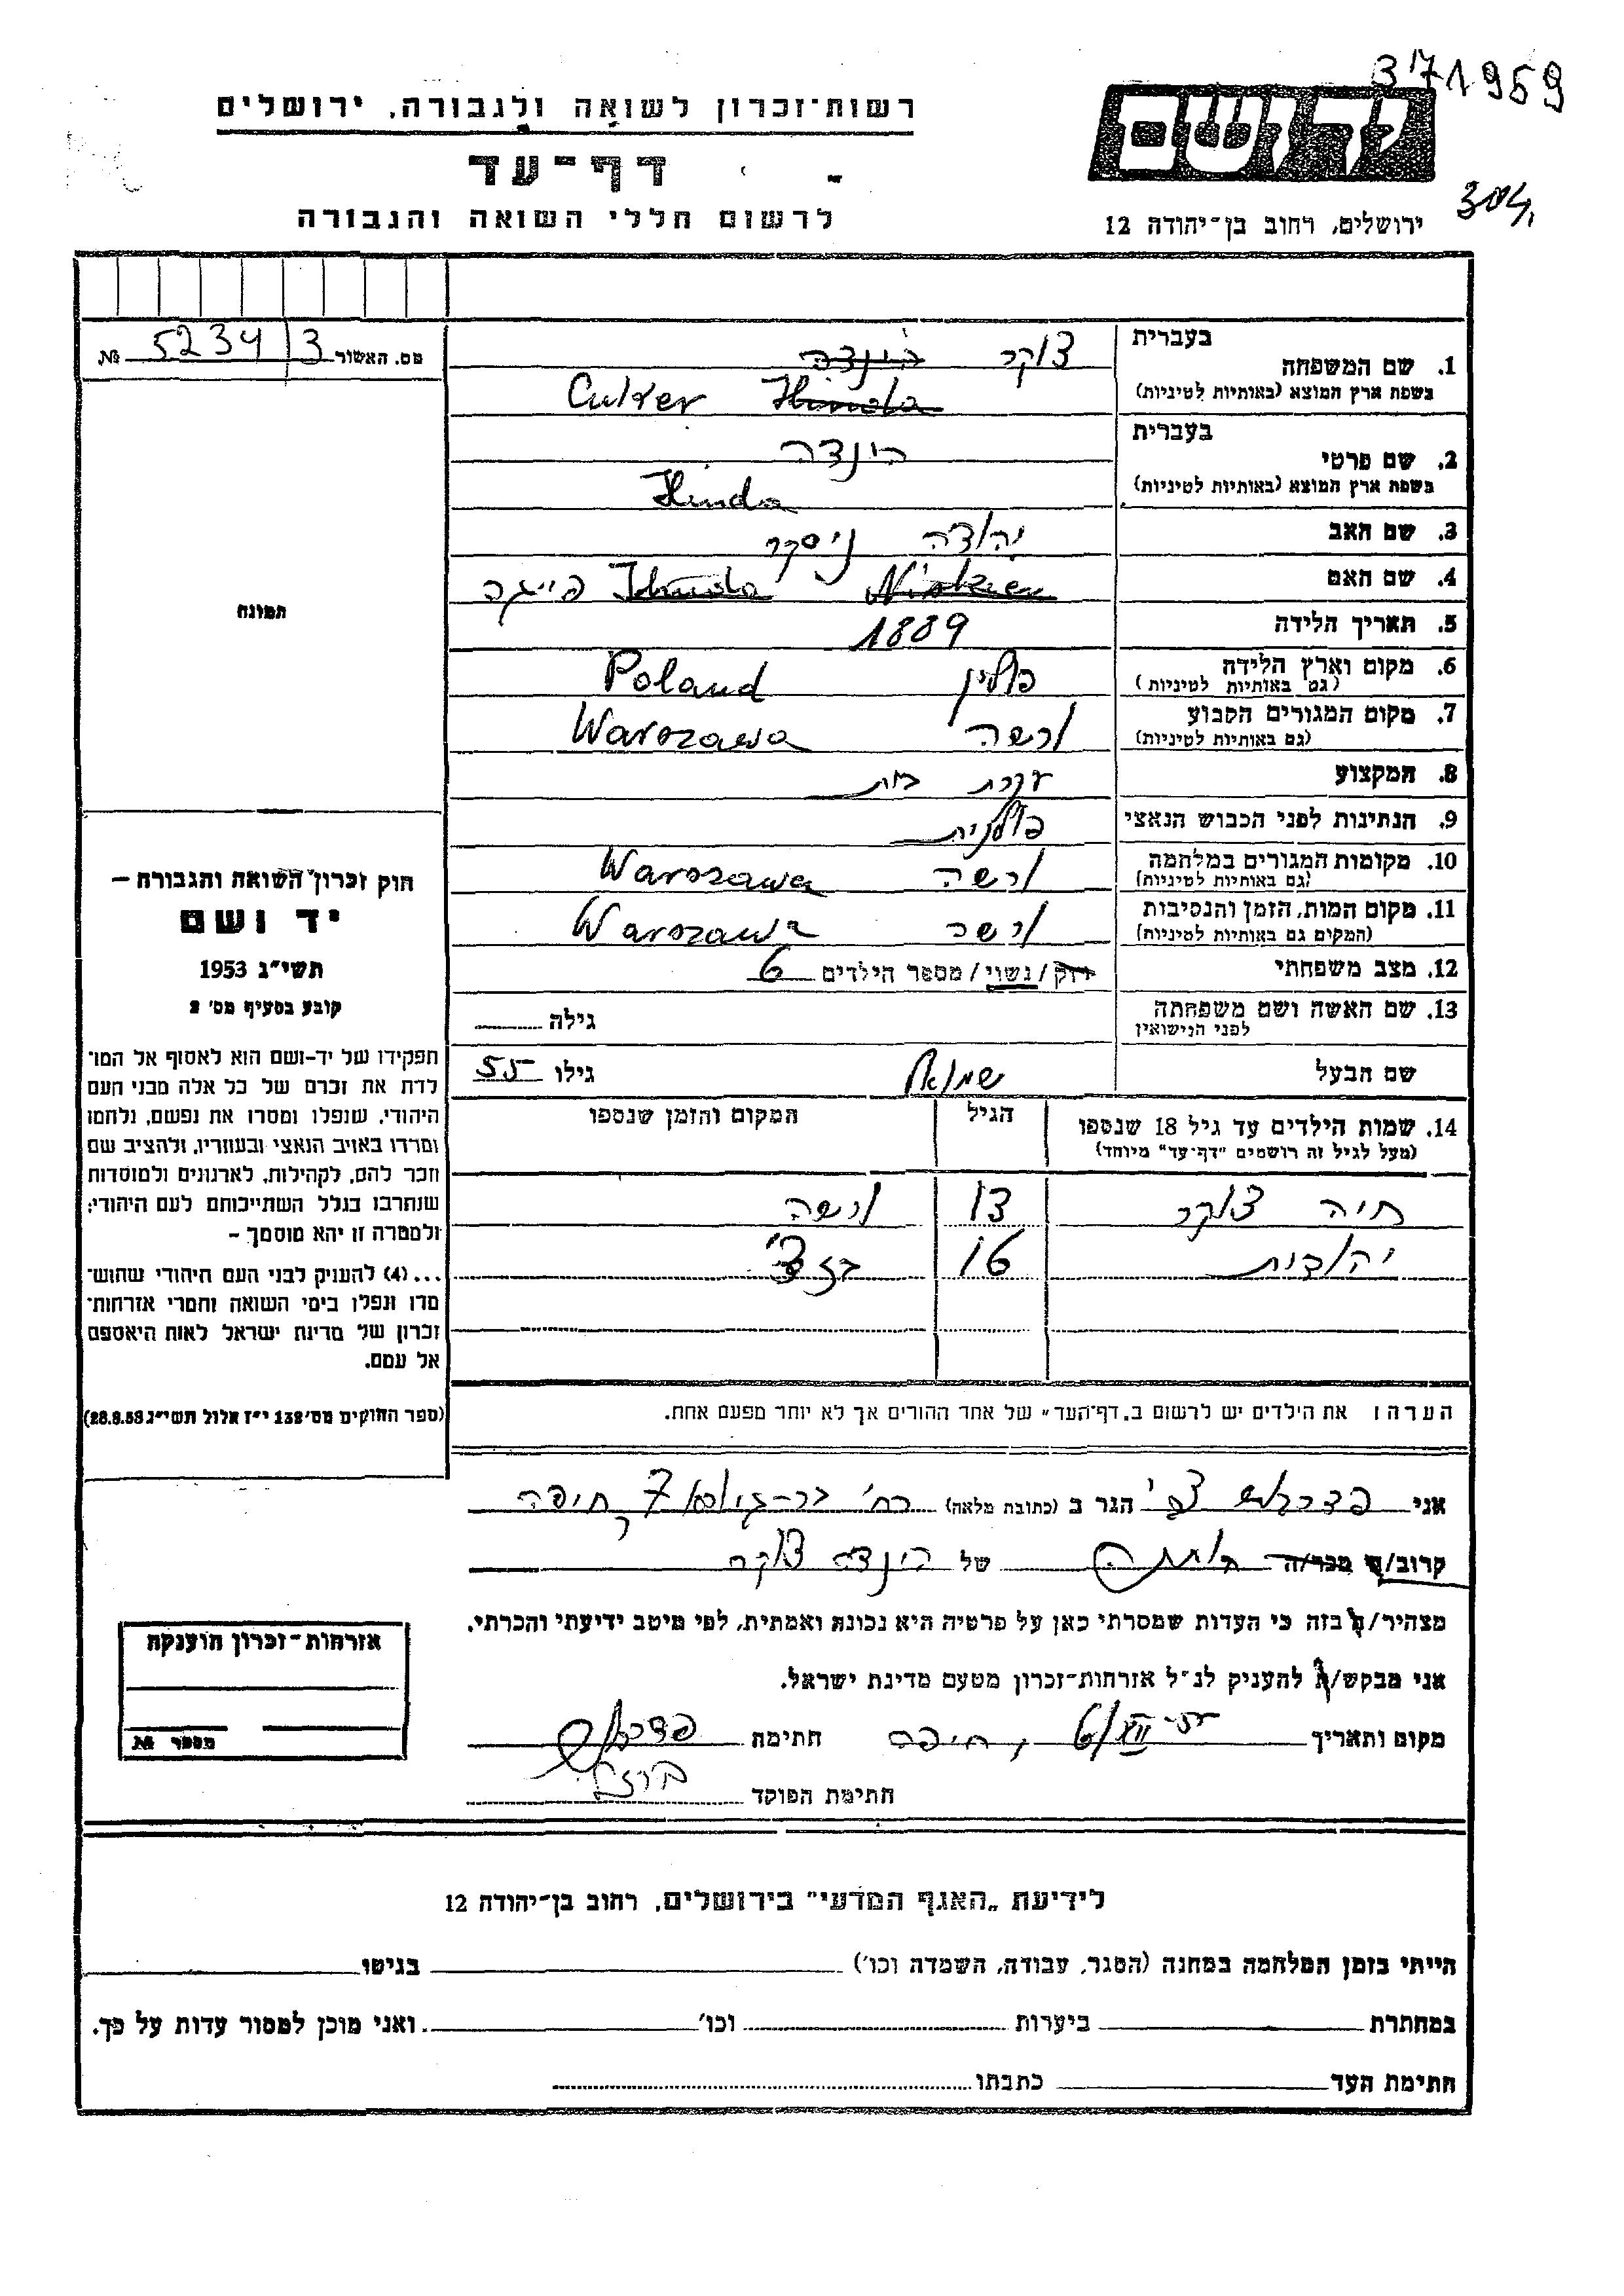 371959
רשות־זכרון לשואה ולגבורה, ירושלים
דף־עד
לרשום חללי השואה והגבורה
יד ושם
304.
ירושלים, רחוב בן־יהודה 12
מס. האשור 5234/3 №
1. שם המשפחה
בעברית צוקר הינדה
בשפת ארץ המוצא (באותיות לטיניות) Cukier Hinda
2. שם פרטי
בעברית הינדה
בשפת ארץ המוצא (באותיות לטיניות) Hinda
3. שם האב יהודה ניסקר
4. שם האם פייגה
5. תאריך הלידה 1889
6. מקום וארץ הלידה פולין Poland
(גם באותיות לטיניות)
7. מקום המגורים הקבוע ורשה Warszawa
(גם באותיות לטיניות)
8. המקצוע עקרת בית
9. הנתינות לפני הכבוש הנאצי פולנית
10. מקומות המגורים במלחמה ורשה Warszawa
(גם באותיות לטיניות)
11. מקום המות, הזמן והנסיבות ורשה Warszawa
(המקום גם באותיות לטיניות)
12. מצב משפחתי רוק / נשוי / מספר הילדים 6
13. שם האשה ושם משפחתה גילה
לפני הנישואין
שם הבעל שמואל גילו 55
14. שמות הילדים עד גיל 18 שנספו הגיל המקום והזמן שנספו
(מעל לגיל זה רושמים "דף־עד" מיוחד)
חיה צוקר 13 ורשה
יהודית 16
הערה: את הילדים יש לרשום ב"דף־העד" של אחד ההורים אך לא יותר מפעם אחת.
תמונה
חוק זכרון השואה והגבורה —
יד ושם
תשי"ג 1953
קובע בסעיף מס' 2
תפקידו של יד־ושם הוא לאסוף אל המו־
לדת את זכרם של כל אלה מבני העם
היהודי, שנפלו ומסרו את נפשם, נלחמו
ומרדו באויב הנאצי ובעוזריו, ולהציב שם
וזכר להם, לקהילות, לארגונים ולמוסדות
שנחרבו בגלל השתייכותם לעם היהודי;
ולמטרה זו יהא מוסמך –
...(4) להעניק לבני העם היהודי שהוש־
מדו ונפלו בימי השואה והמרי אזרחות־
זכרון של מדינת ישראל לאות היאספם
אל עמם.
(ספר החוקים מס' 132 י"ז אלול תשי"ג 28.8.53)
אני צבי הגר ב (כתובת מלאה) רח' 7 חיפה
קרוב/ה מכר/ה של הינדה צוקר
מצהיר/ה בזה כי העדות שמסרתי כאן על פרטיה היא נכונה ואמתית, לפי מיטב ידיעתי והכרתי.
אני מבקש/ת להעניק לנ"ל אזרחות־זכרון מטעם מדינת ישראל.
מקום ותאריך 6/XII חיפה, חתימה
חתימת הפוקד
אזרחות־זכרון הוענקה
מספר №
לידיעת "האגף המדעי" בירושלים, רחוב בן־יהודה 12
הייתי בזמן המלחמה במחנה (הסגר, עבודה, השמדה וכו') בגיטו
במחתרת ביערות וכו' ואני מוכן למסור עדות על כך.
חתימת העד כתבתו